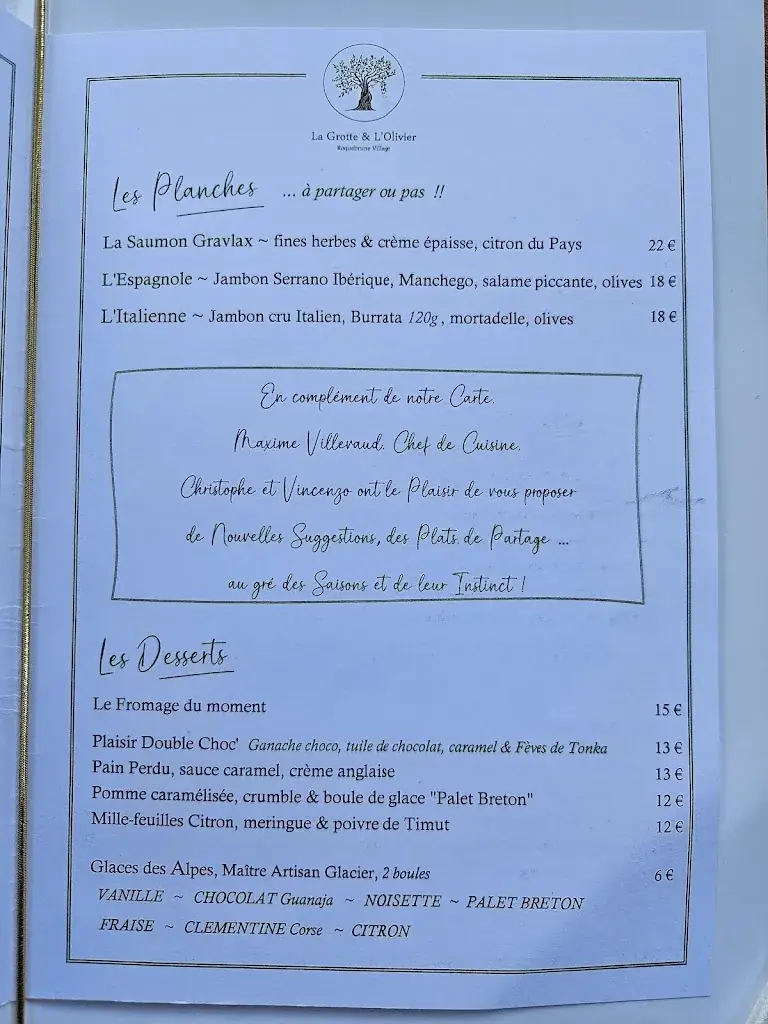 La Grotte & L'Olivier
Roquebrune Village
Les Planches ... à partager ou pas !!
La Saumon Gravlax ~ fines herbes & crème épaisse, citron du Pays 22 €
L'Espagnole ~ Jambon Serrano Ibérique, Manchego, salame piccante, olives 18 €
L'Italienne ~ Jambon cru Italien, Burrata 120g, mortadelle, olives 18 €
En complément de notre Carte.
Maxime Villevaud. Chef de Cuisine.
Christophe et Vincenzo ont le Plaisir de vous proposer
de Nouvelles Suggestions, des Plats de Partage ...
au gré des Saisons et de leur Instinct !
Les Desserts
Le Fromage du moment 15 €
Plaisir Double Choc' Ganache choco, tuile de chocolat, caramel & Fèves de Tonka 13 €
Pain Perdu, sauce caramel, crème anglaise 13 €
Pomme caramélisée, crumble & boule de glace "Palet Breton" 12 €
Mille-feuilles Citron, meringue & poivre de Timut 12 €
Glaces des Alpes, Maître Artisan Glacier, 2 boules 6 €
VANILLE ~ CHOCOLAT Guanaja ~ NOISETTE ~ PALET BRETON
FRAISE ~ CLEMENTINE Corse ~ CITRON